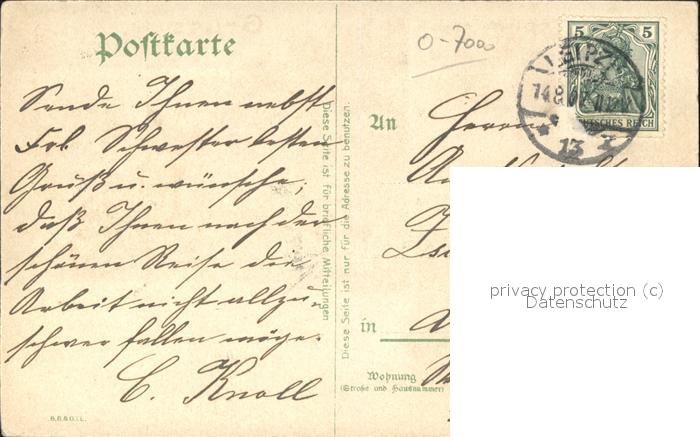 Postkarte
Sende Ihnen nebst
Frl. Schwester besten
Gruß u. wünsche,
daß Ihnen nach der
schönen Reise die
Arbeit nicht allzu-
schwer fallen möge.
C. Knoll
B.B.&O.i.L.
Diese Seite ist für briefliche Mitteilungen
Diese Seite ist nur für die Adresse zu benutzen.
0-7000
5 5
DEUTSCHES REICH
LEIPZIG
13
An Herrn
in
Wohnung
(Straße und Hausnummer)
privacy protection (c)
Datenschutz